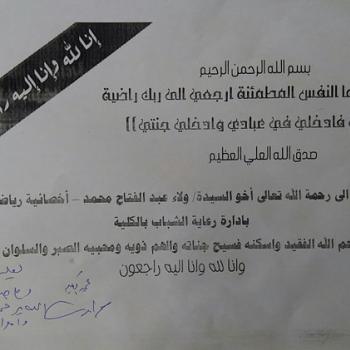 إنا لله وإنا إليه
بسم الله الرحمن الرحيم
النفس المطمئنة ارجعي الى ربك راضية
فادخلي في عبادي وادخلي جنتي))
صدق الله العلي العظيم
الى رحمة الله تعالى أخو السيدة/ ولاء عبد الفتاح محمد - أخصائية
بادارة رعاية الشباب بالكلية
الله الفقيد واسكنه فسيح جناته والهم ذويه ومحبيه الصبر والسلوان
وانا لله وانا اليه راجعون